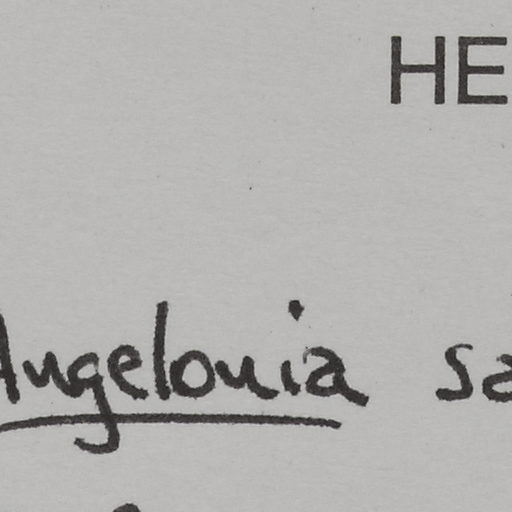 HE
Angelonia sa